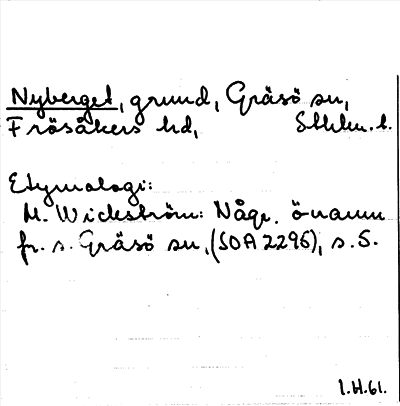 Nyberget, grund, Gräsö sn,
Frösåkers hd, Sthlm. l.
Etymologi:
M. Wickström: Någr. önamn
fr. s. Gräsö sn, (SOA 2296), s. 5.
I.H.61.